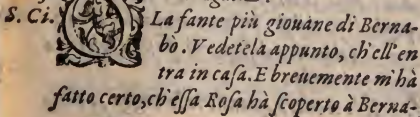 S. Ci. Q La fante più giouàne di Berna-
bò. Vedetela appunto, ch'ell'en
tra in casa. E breuemente m'hà
fatto certo, ch'essa Rosa hà scoperto à Berna-